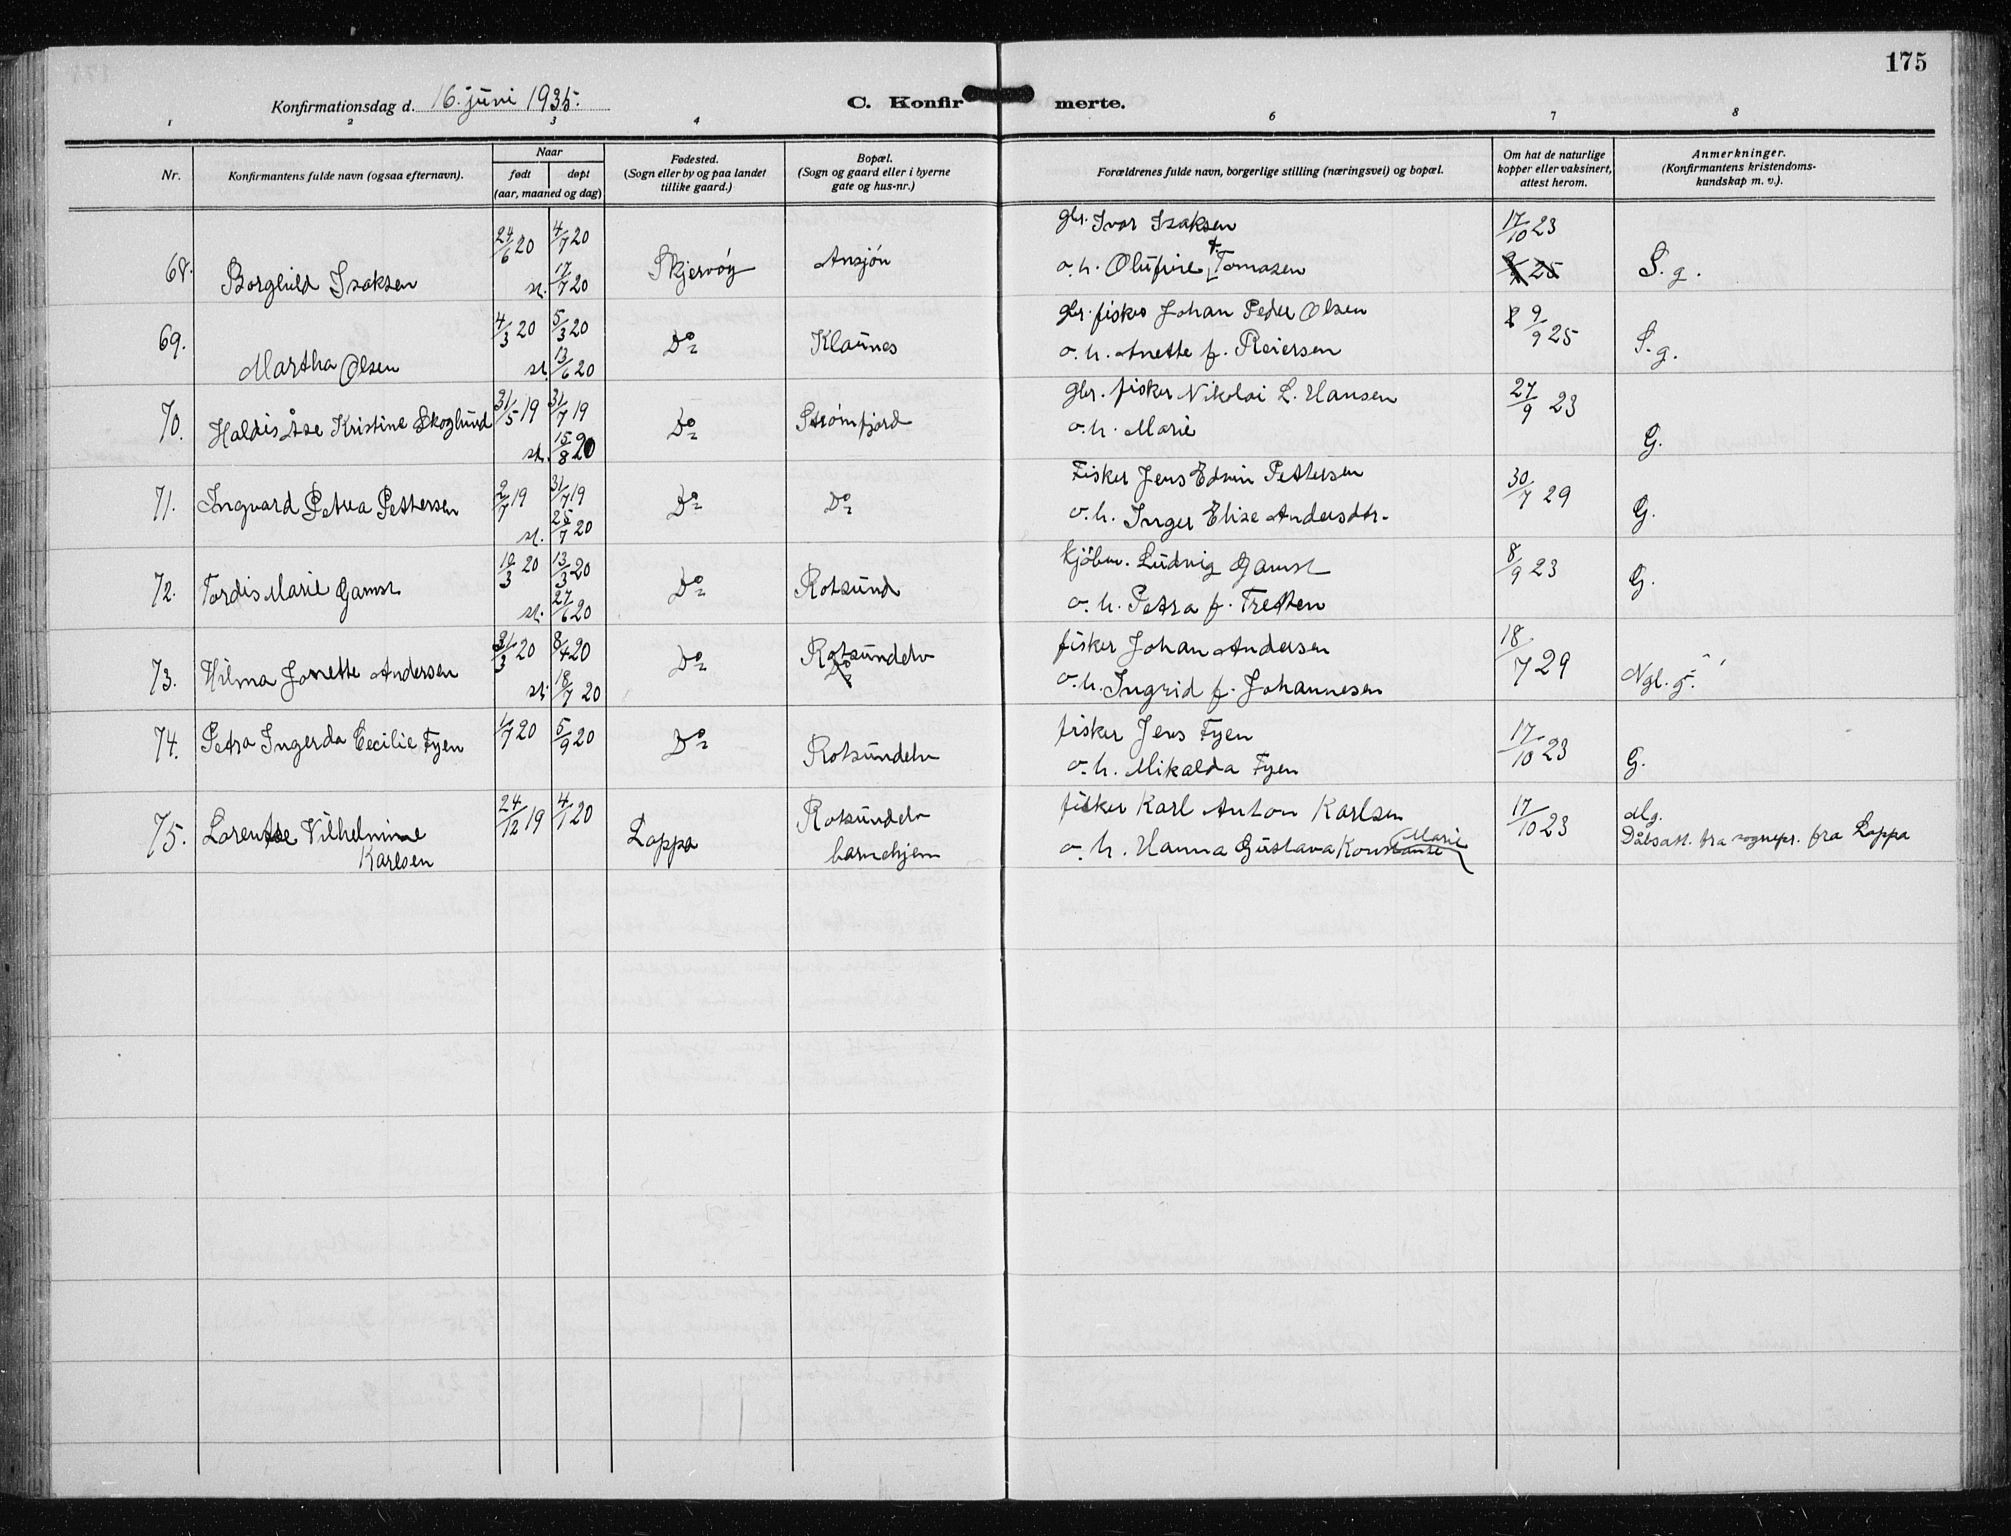 175
Konfirmationsdag d. 16. juni 1935.
C. Konfirmerte.
1 2 3 4 6 7 8
Nr.
Konfirmantens fulde navn (ogsaa efternavn).
Naar
født døpt
(aar, maaned og dag)
Fødested.
(Sogn eller by og paa landet
tillike gaard.)
Bopæl.
(Sogn og gaard eller i byerne
gate og hus-nr.)
Forældrenes fulde navn, borgerlige stilling (næringsvei) og bopæl.
Om hat de naturlige
kopper eller vaksinert,
attest herom.
Anmerkninger.
(Konfirmantens kristendoms-
kundskap m. v.).
68. Borghild Isaksen 24/6 20 4/7 20 st. 17/7 20 Skjervøy Ansjøn
gbr. Ivar Isaksen 17/10 23
o. h. Olufine f. Tomasen S. g.
69. Martha Olsen 4/3 20 5/3 20 st. 13/6 20 Do Klaunes
gbr. fisker Johan Peder Olsen 9/9 25
o. h. Anette f. Reiersen S. g.
70. Haldis Åse Kristine Skoglund 31/5 19 31/7 19 st. 15/8 20 Do Strømfjord
gbr. fisker Nikolai L. Hansen 27/9 23
o. h. Marie G.
71. Ingvard Petrea Pettersen 2/7 19 31/7 19 st. 25/7 20 Do Do
Fisker Jens Edvin Pettersen 30/7 29
o. h. Inger Elise Andersdtr. G.
72. Tordis Marie Gamst 10/3 20 13/3 20 st. 27/6 20 Do Rotsund
kjøbm. Ludvig Gamst 8/9 23
o. h. Petra f. Tretten G.
73. Hilma Jonette Andersen 31/3 20 8/4 20 st. 18/7 20 Do Rotsundelv
fisker Johan Andersen 18/7 29
o. h. Ingrid f. Johannesen Ngl. g.
74. Petra Ingerda Cecilie Fyen 1/7 20 5/9 20 Do Rotsundelv
fisker Jens Fyen 17/10 23
o. h. Mikalda Fyen G.
75. Lorentse Vilhelmine
Karlsen 24/12 19 4/1 20 Loppa Rotsundelv
barnehjem
fisker Karl Anton Karlsen 17/10 23
o. h. Hanna Gustava Konstanse Marie
Mg.
Dåbsatt. fra sognepr. fra Loppa